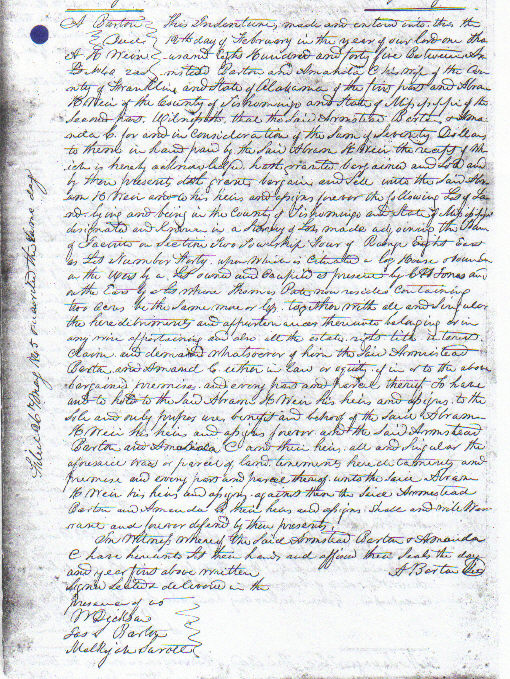 A Barton
Deed
A H Weir
This Indenture, made and entered into this the
12th day of February in the year of our lord one thou
usand eight hundred and forty five Between Ar
mistead Barton and Amanda C his wife of the Cou
nty of Franklin and State of Alabama of the first part and Abram
H Weir of the County of Tishomingo and State of Mississippi of the
second part, Witnesseth, that the Said Armstead Barton & Ama
nda C for and in Consideration of the Sum of Seventy Dollars
to them in hand paid by the Said Abram H Weir the receipt of Wh
ich is hereby acknowledged hath granted bargained and Sold and
by these presents doth grant bargain and Sell unto the Said Abr
am H Weir and to his heirs and assigns forever the following Lot of Lan
nd lying and being in the County of Tishomingo and State of Mississippi
designated and Known in a Survey of Lots made adjoining the Plan
of in Section Two Township Four of Range Eight East
as Lot Number Forty upon Which is Cituated a log House
on the West by a Lot owned and Occupied at present by C H Jones an
on the East by a Lot Where Thomas Pate now resides Containing
two Acres be the Same more or less together with all and Singular
the hereditaments and appurtenances thereunto belonging or in
any wise appertaining and also all the estate right title interest
Claim and demand whatsoever of him the Said Armistead
Barton and Amand C either in law or equity of in or to the above
bargained premises and every part and parcel thereof To have
and to hold to the Said Abram H Weir his heirs and assigns to the
Sole and only proper use, benefit and behoof of the Said Abram
H Weir his heirs and assigns forever and the Said Armstead
Barton and Amanda C and their heirs all and Singular the
aforesaid tract or parcel of land tenements hereditaments and
premise and every part and parcel thereof unto the Said Abram
H Weir his heirs and assigns against them the Said Armstead
Barton and Amanda C their heirs and assigns Shall and will War
rant and forever defend by these presents
In Witness Whereof the Said Armstead Barton & Amanda
C have hereunto Set their hands and affixed their Seals the day
and year first above written
A Barton
Signed Sealed & delivered in the
presence of us
W Dickson
Jas S Barton
Filed 26th May 1845 recorded the Same day